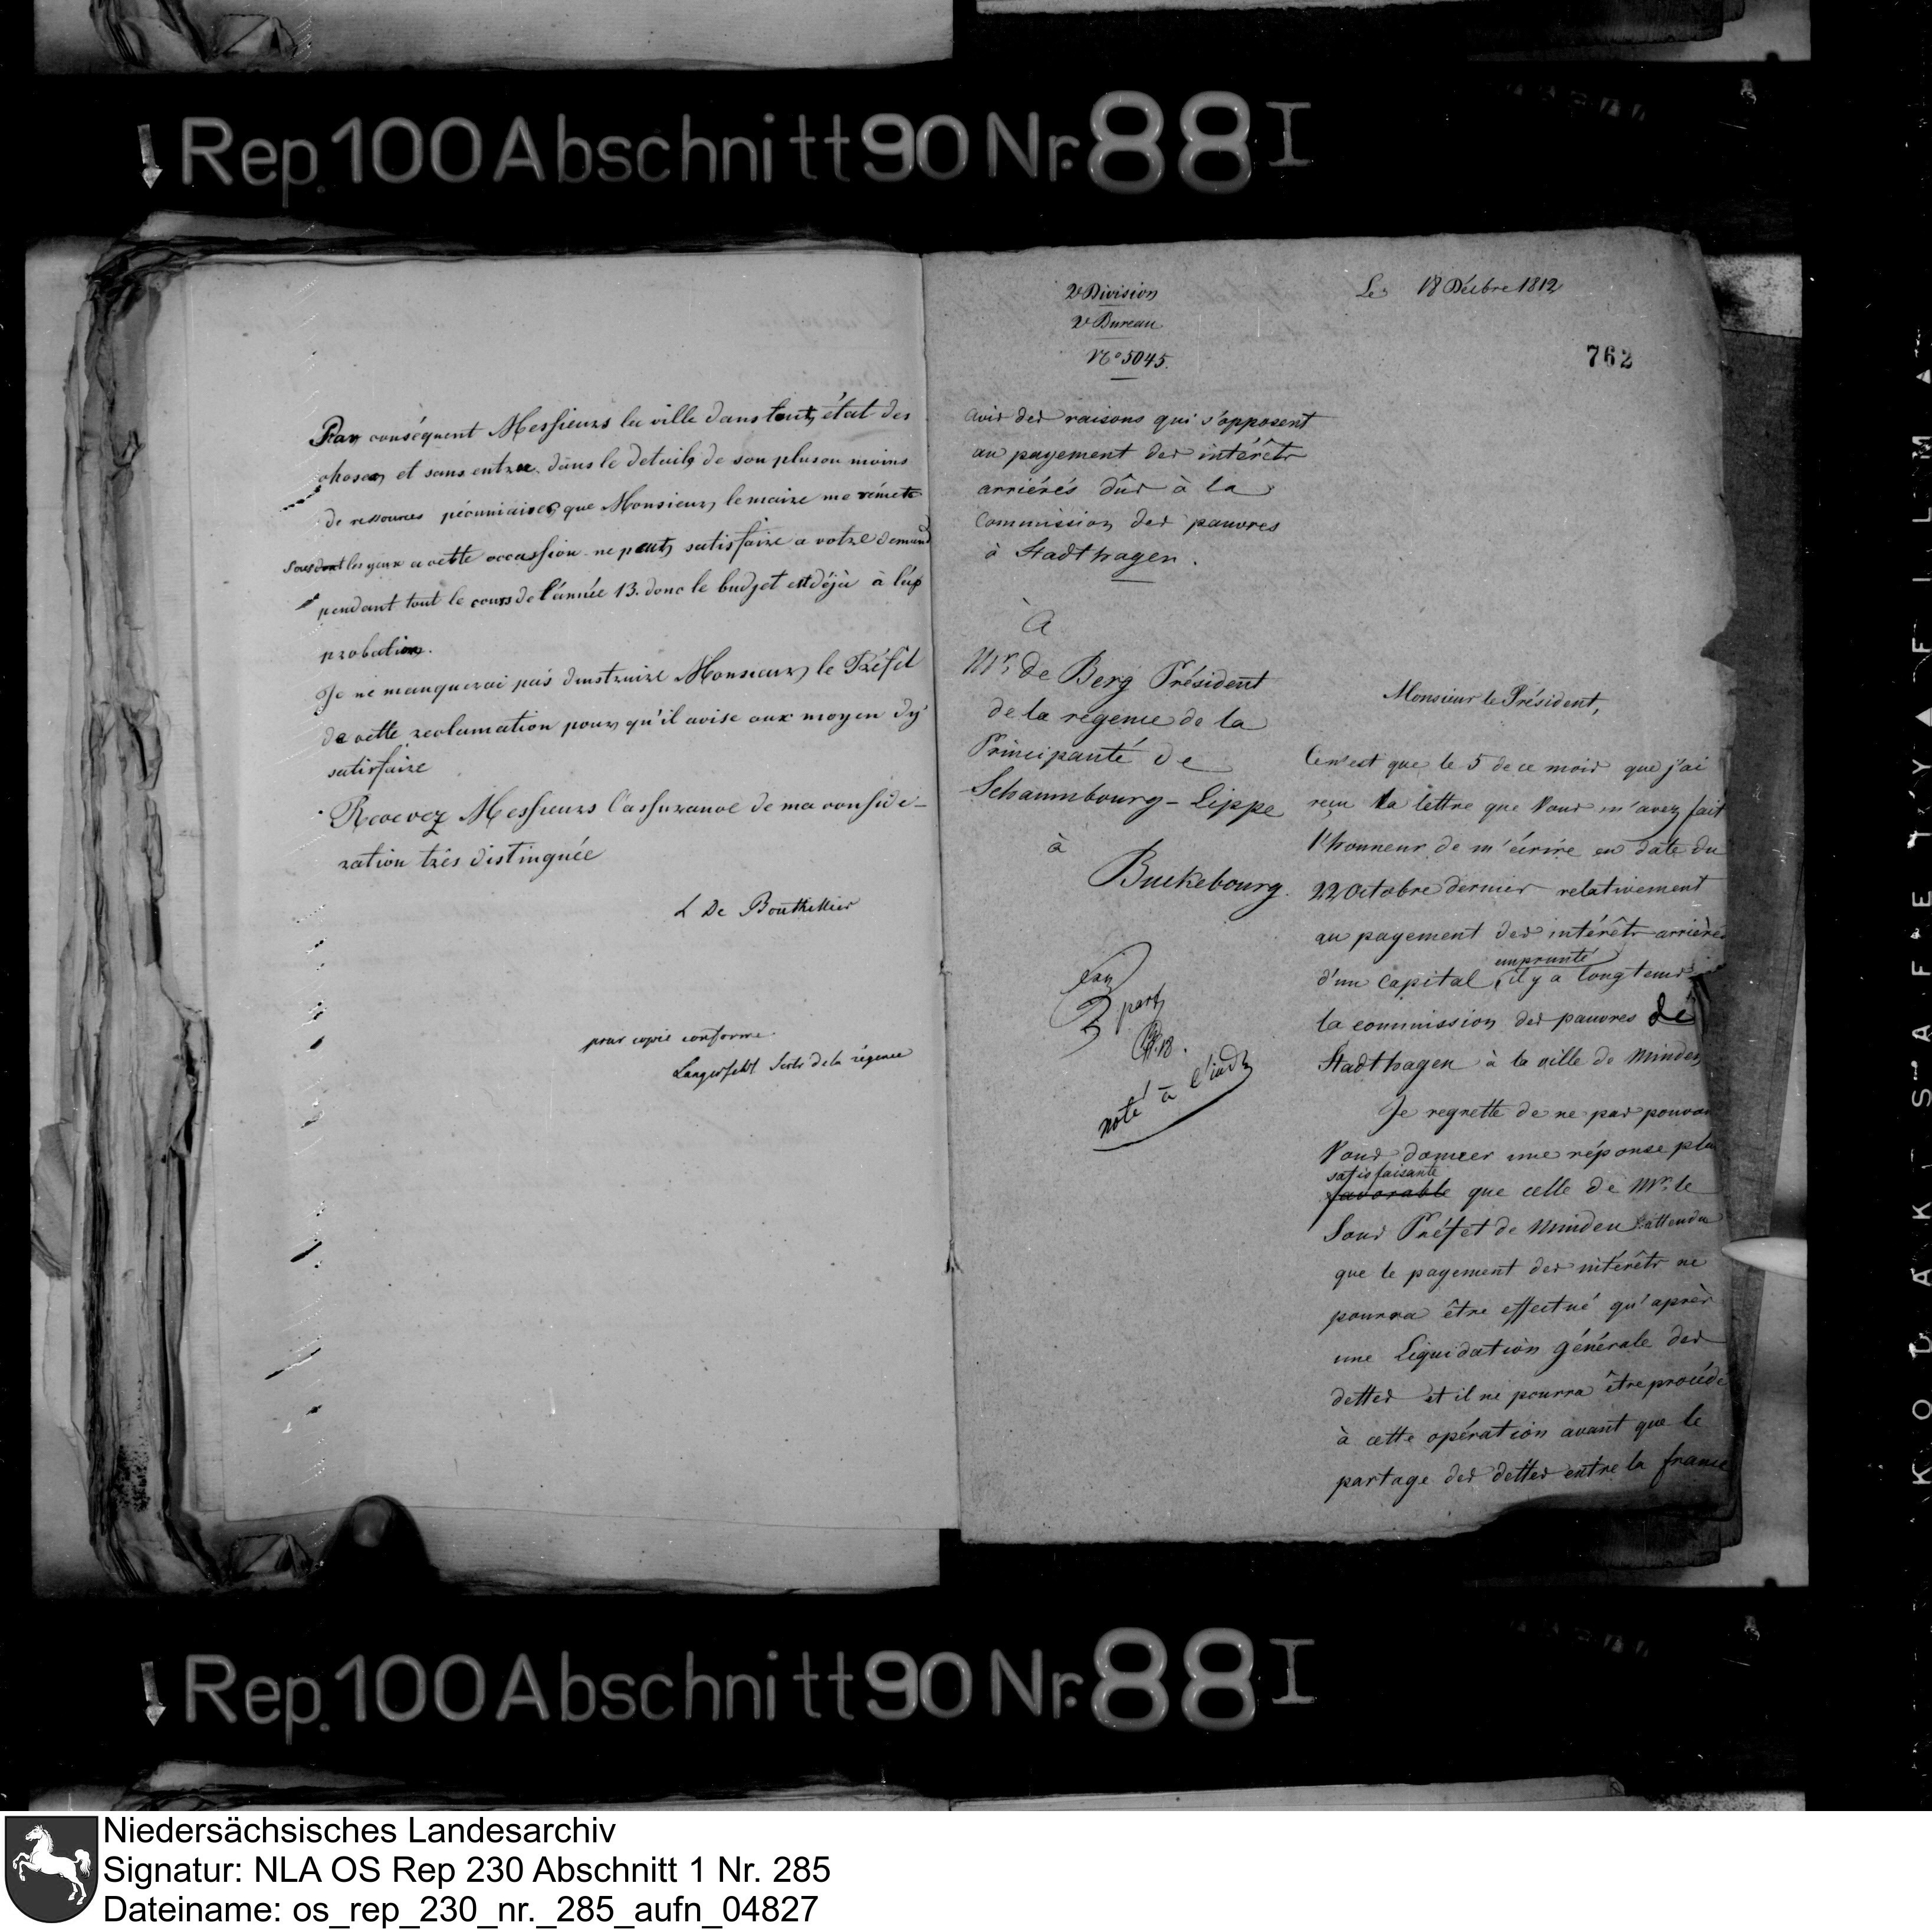 Rep. 100 Abschnitt 90 Nr. 88 I
Par conséquent Messieurs la ville dans tout état des
choses et sans entrer dans le détails de son plus ou moins
de ressources pécuniaires que Monsieur le maire me remets
sous les yeux a cette occassion ne peut satisfaire a votre demand
pendant tout le cours de l'année 13. donc le budget est déjà à l'ap
probation.
Je ne manquerai pas dinstruire Monsieur le Préfet
de cette reclamation pour qu'il avise aux moyen dy
satisfaire
Recevez Messieurs l'assurance de ma conside-
ration très distinguée
L De Bouthillier
pour copie conforme
Langerfeldt Secr de la régence
2e Division
2e Bureau
No 5045.
Le 18 Décbre 1812
762
avis des raisons qui s'opposent
au payement des intérêts
arriérés dûs à la
Commission des pauvres
à Stadthagen.
À
Mr. de Berg Président
de la régence de la
Principauté de
Schaumbourg-Lippe
à
Buckebourg.
part
18.
noté à l'ind
Monsieur le Président,
Ce n'est que le 5 de ce mois que j'ai
reçu la lettre que Vous m'avez fait
l'honneur de m'écrire en date du
22 Octobre dernier relativement
au payement des intérêts arriérés
emprunté
d'un capital, il y a longtems
la commission des pauvres de
Stadthagen à la ville de Minden
Je regrette de ne pas pouvoi
Vous donner une réponse plu
satisfaisante
favorable que celle de Mr. le
Sous Préfet de Minden attendu
que le payement des intérêts ne
pourra être effectué qu'après
une Liquidation générale des
dettes et il ne pourra être procédé
à cette opération avant que le
partage des dettes entre la france
Rep. 100 Abschnitt 90 Nr. 88 I
Niedersächsisches Landesarchiv
Signatur: NLA OS Rep 230 Abschnitt 1 Nr. 285
Dateiname: os_rep_230_nr._285_aufn_04827